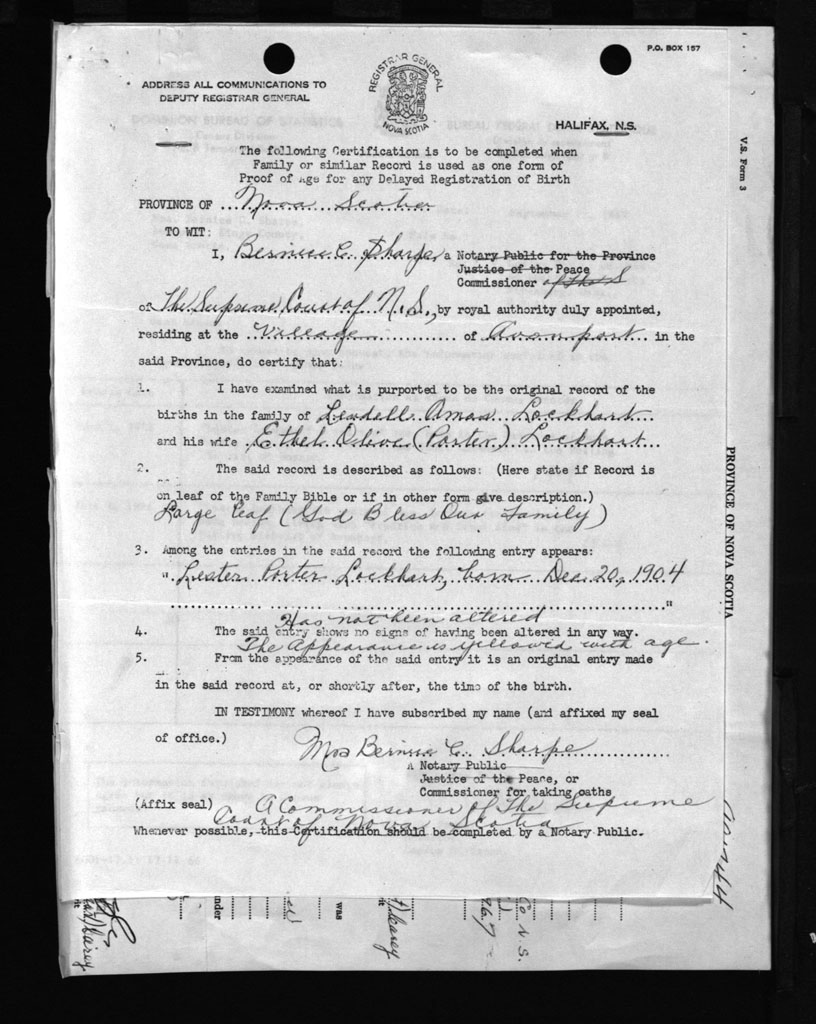 P.O. BOX 157
REGISTRAR GENERAL
NOVA SCOTIA
ADDRESS ALL COMMUNICATIONS TO
DEPUTY REGISTRAR GENERAL
HALIFAX, N.S.
V.S. Form 3
The following Certification is to be completed when
Family or similar Record is used as one form of
Proof of Age for any Delayed Registration of Birth
PROVINCE OF Nova Scotia
TO WIT:
I, Bernice C. Sharpe, a Notary Public for the Province
Justice of the Peace
Commissioner of the S
of The Supreme Court of N.S., by royal authority duly appointed,
residing at the Village of Avonport in the
said Province, do certify that:
1. I have examined what is purported to be the original record of the
births in the family of Lendell Amos Lockhart
and his wife Ethel Olive (Porter) Lockhart
2. The said record is described as follows: (Here state if Record is
on leaf of the Family Bible or if in other form give description.)
Large leaf (God Bless Our Family)
3. Among the entries in the said record the following entry appears:
"Lester Porter Lockhart, born Dec. 20, 1904
"
Has not been altered
4. The said entry shows no signs of having been altered in any way.
The Appearance is yellowed with age.
5. From the appearance of the said entry it is an original entry made
in the said record at, or shortly after, the time of the birth.
IN TESTIMONY whereof I have subscribed my name (and affixed my seal
of office.)
Mrs Bernice C. Sharpe
A Notary Public
Justice of the Peace, or
Commissioner for taking oaths
(Affix seal) A Commissioner of The Supreme
Court of Nova Scotia
Whenever possible, this Certification should be completed by a Notary Public.
PROVINCE OF NOVA SCOTIA
under
was
Co N.S.